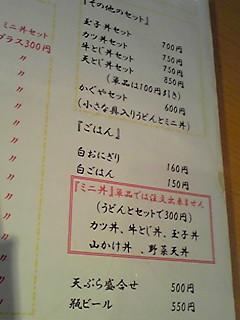 『その他のセット』
玉子丼セット 700円
カツ丼セット 750円
牛とじ丼セット 750円
天とじ丼セット 850円
(単品は100円引き)
かぐやセット 600円
(小さな具入りうどんとミニ丼)
『ごはん』
白おにぎり 160円
白ごはん 150円
『ミニ丼』単品では注文出来ません
(うどんとセットで300円)
カツ丼、牛とじ丼、玉子丼
山かけ丼、野菜天丼
天ぷら盛合せ 500円
瓶ビール 550円
ミニ丼セット
プラス300円
〃
〃
〃
〃
〃
〃
〃
〃
〃
〃